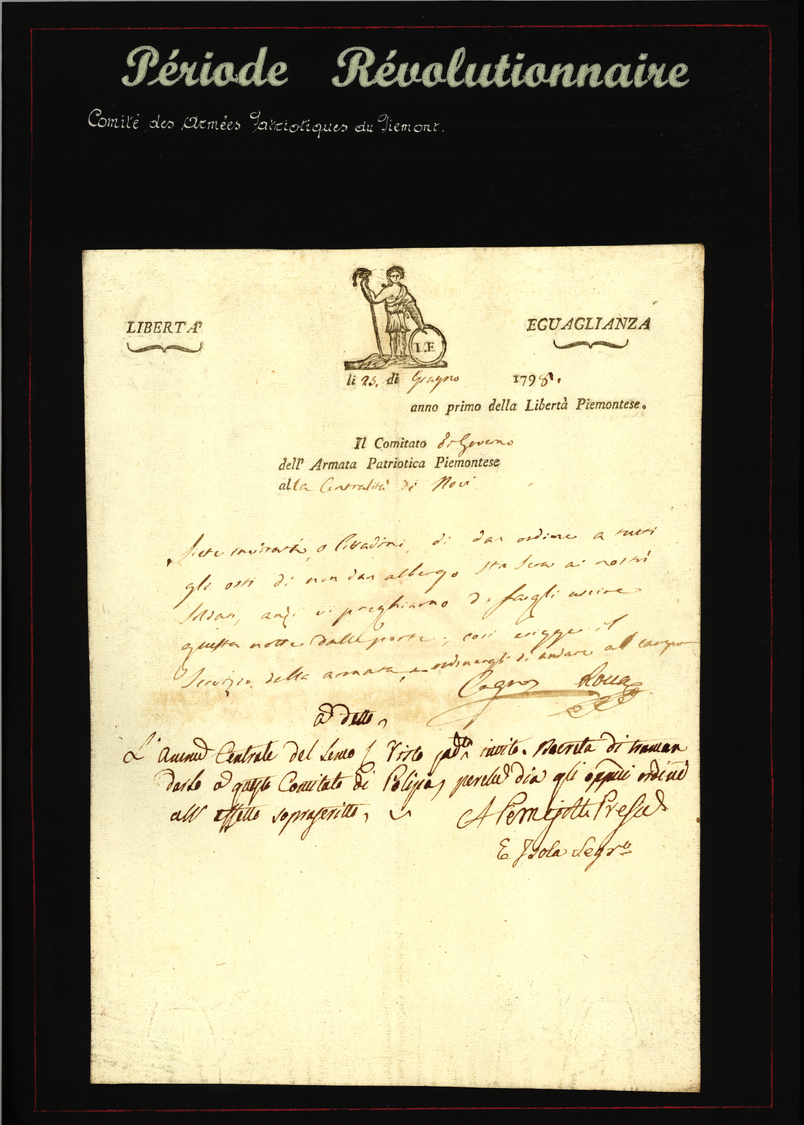 Période Révolutionnaire
Comité des Armées Patriotiques du Piemont.
LIBERTA'
EGUAGLIANZA
L.E
li 25. di Giugno 1798.
anno primo della Libertà Piemontese.
Il Comitato di Governo
dell' Armata Patriotica Piemontese
alla Centralità di Novi
Siete invitati, o Cittadini, di dar ordine a tutti
gli osti di non dar albergo sta sera ai nostri
anzi vi preghiamo di fargli uscire
questa notte dalle porte, così esigge il
Servizio della armata, e ordinargli di andare al campo
Rocca
a dì detto,
L' Centrale del Visto invito. Decreta di traman
darlo a questo Comitato di Polizia, perchè dia gli ordini
all' effetto soprascritto,
E Isola Segr.o